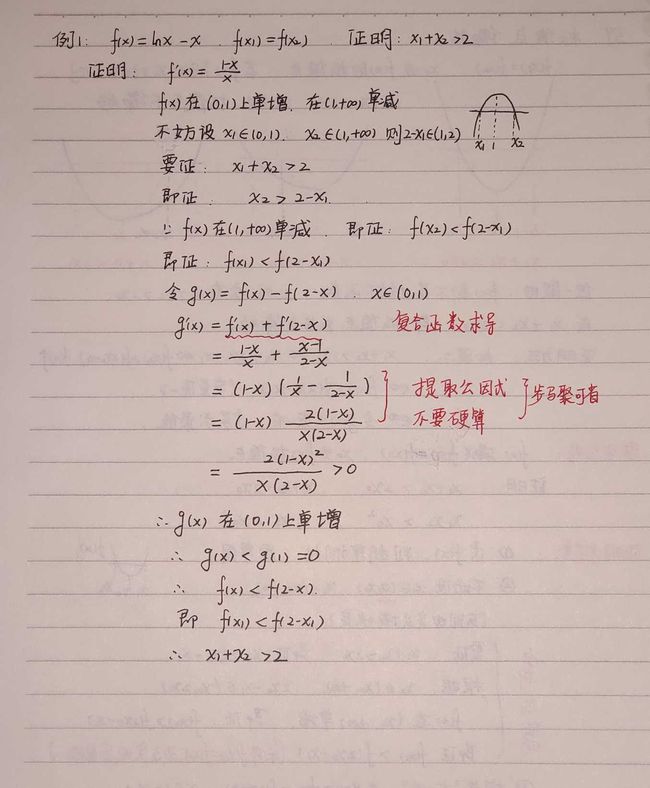 例1: f(x)=lnx-x. f(x₁)=f(x₂). 证明: x₁+x₂>2
证明: f'(x)=\frac{1-x}{x}
f(x)在(0,1)上单增. 在(1,+∞)单减
不妨设 x₁∈(0,1). x₂∈(1,+∞) 则2-x₁∈(1,2)
x₁ 1 x₂
要证: x₁+x₂>2
即证 x₂>2-x₁
∵ f(x)在(1,+∞)单减 即证: f(x₂)<f(2-x₁)
即证: f(x₁)<f(2-x₁)
令g(x)=f(x)-f(2-x). x∈(0,1)
g'(x)=f'(x)+f'(2-x) 复合函数求导
=\frac{1-x}{x}+\frac{x-1}{2-x}
=(1-x)(\frac{1}{x}-\frac{1}{2-x}) 提取公因式
=(1-x)\frac{2(1-x)}{x(2-x)} 不要硬算
=\frac{2(1-x)²}{x(2-x)}>0
∴g(x)在(0,1)上单增
∴g(x)<g(1)=0
∴f(x)<f(2-x).
即 f(x₁)<f(2-x₁)
∴x₁+x₂>2